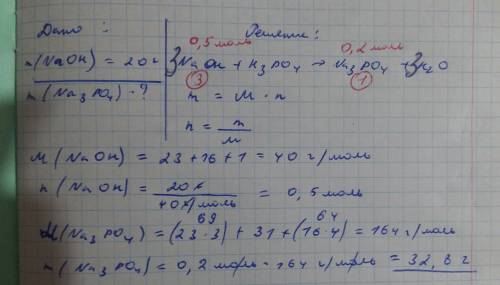 Дано: Решение:
0,5 моль 0,2 моль
m(NaOH) = 20 г 3NaOH + H₃PO₄ → Na₃PO₄ + 3H₂O
③ ①
m(Na₃PO₄) - ? m = M · n
n = m/M
M(NaOH) = 23 + 16 + 1 = 40 г/моль
n(NaOH) = 20 г / 40 г/моль = 0,5 моль
69 64
M(Na₃PO₄) = (23·3) + 31 + (16·4) = 164 г/моль
m(Na₃PO₄) = 0,2 моль · 164 г/моль = 32,8 г